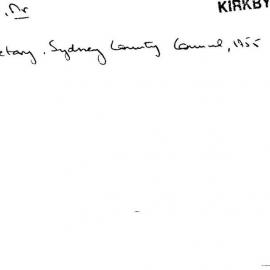 , Mr
KIRKBY
etary. Sydney County Council, 1955